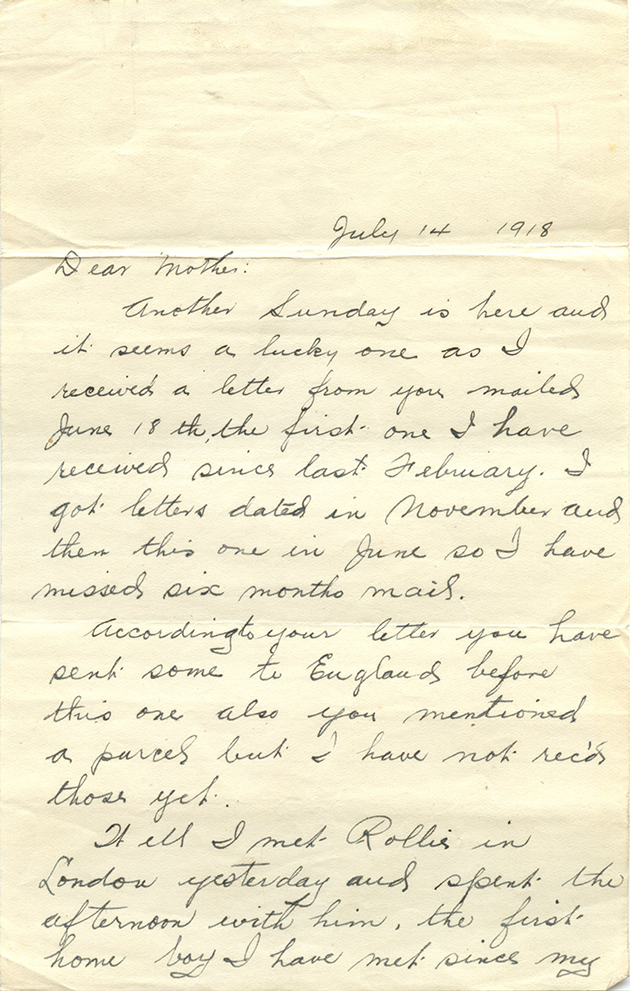 July 14 1918
Dear Mother:
Another Sunday is here and
it seems a lucky one as I
received a letter from you mailed
June 18 th, the first one I have
received since last February. I
got letters dated in November and
then this one in June so I have
missed six months mail.
According to your letter you have
sent some to England before
this one also you mentioned
a parcel but I have not rec'd
those yet.
Well I met Rollie in
London yesterday and spent the
afternoon with him, the first
home boy I have met since my